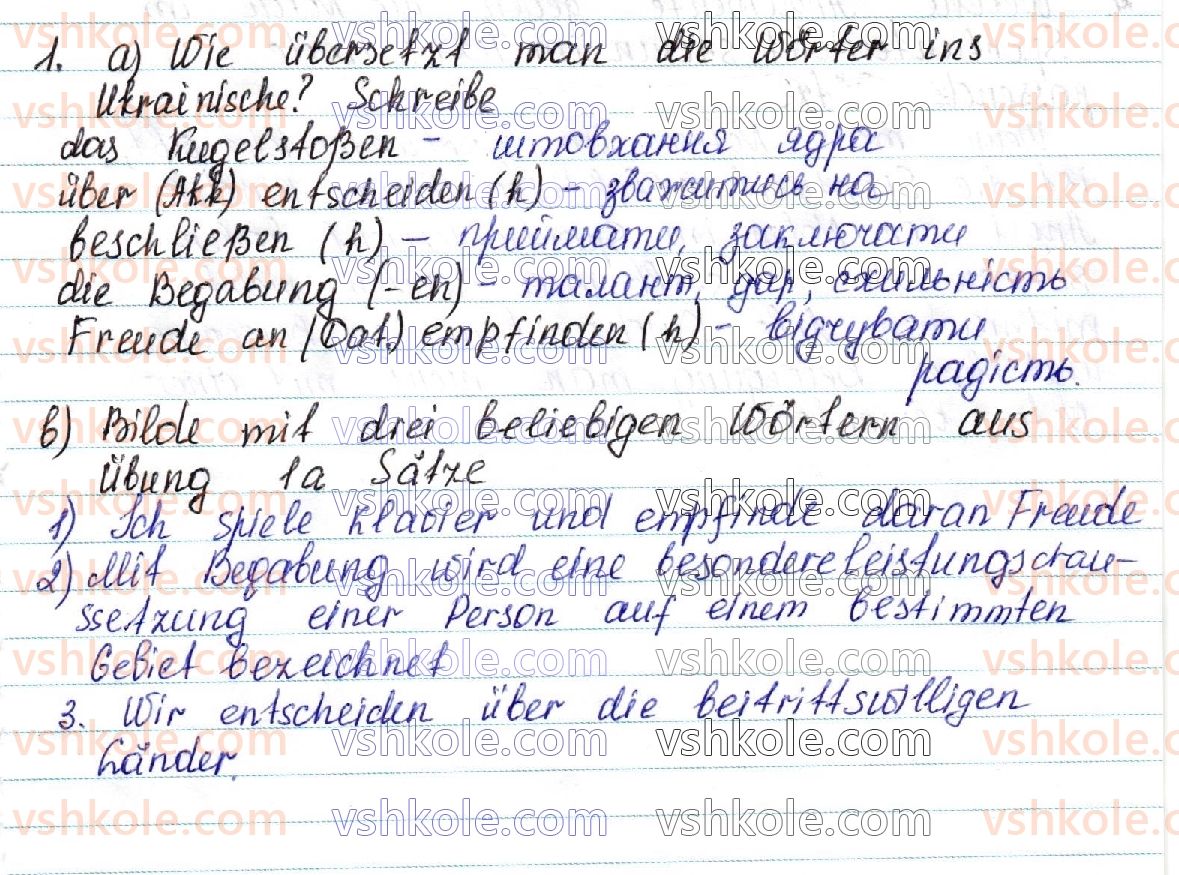 1. a) Wie übersetzt man die Wörter ins
Ukrainische? Schreibe
das Kugelstoßen - штовхання ядра
über (Akk) entscheiden (h) - зважитись на
beschließen (h) - приймати, заключати
die Begabung (-en) - талант, дар, схильність
Freude an (Dat) empfinden (h) - відчувати
радість.
b) Bilde mit drei beliebigen Wörtern aus
Übung 1a Sätze
1) Ich spiele Klavier und empfinde daran Freude
2) Mit Begabung wird eine besondere leistungschau-
ssetzung einer Person auf einem bestimmten
Gebiet bezeichnet
3. Wir entscheiden über die beitrittswilligen
Länder.
vshkole.com